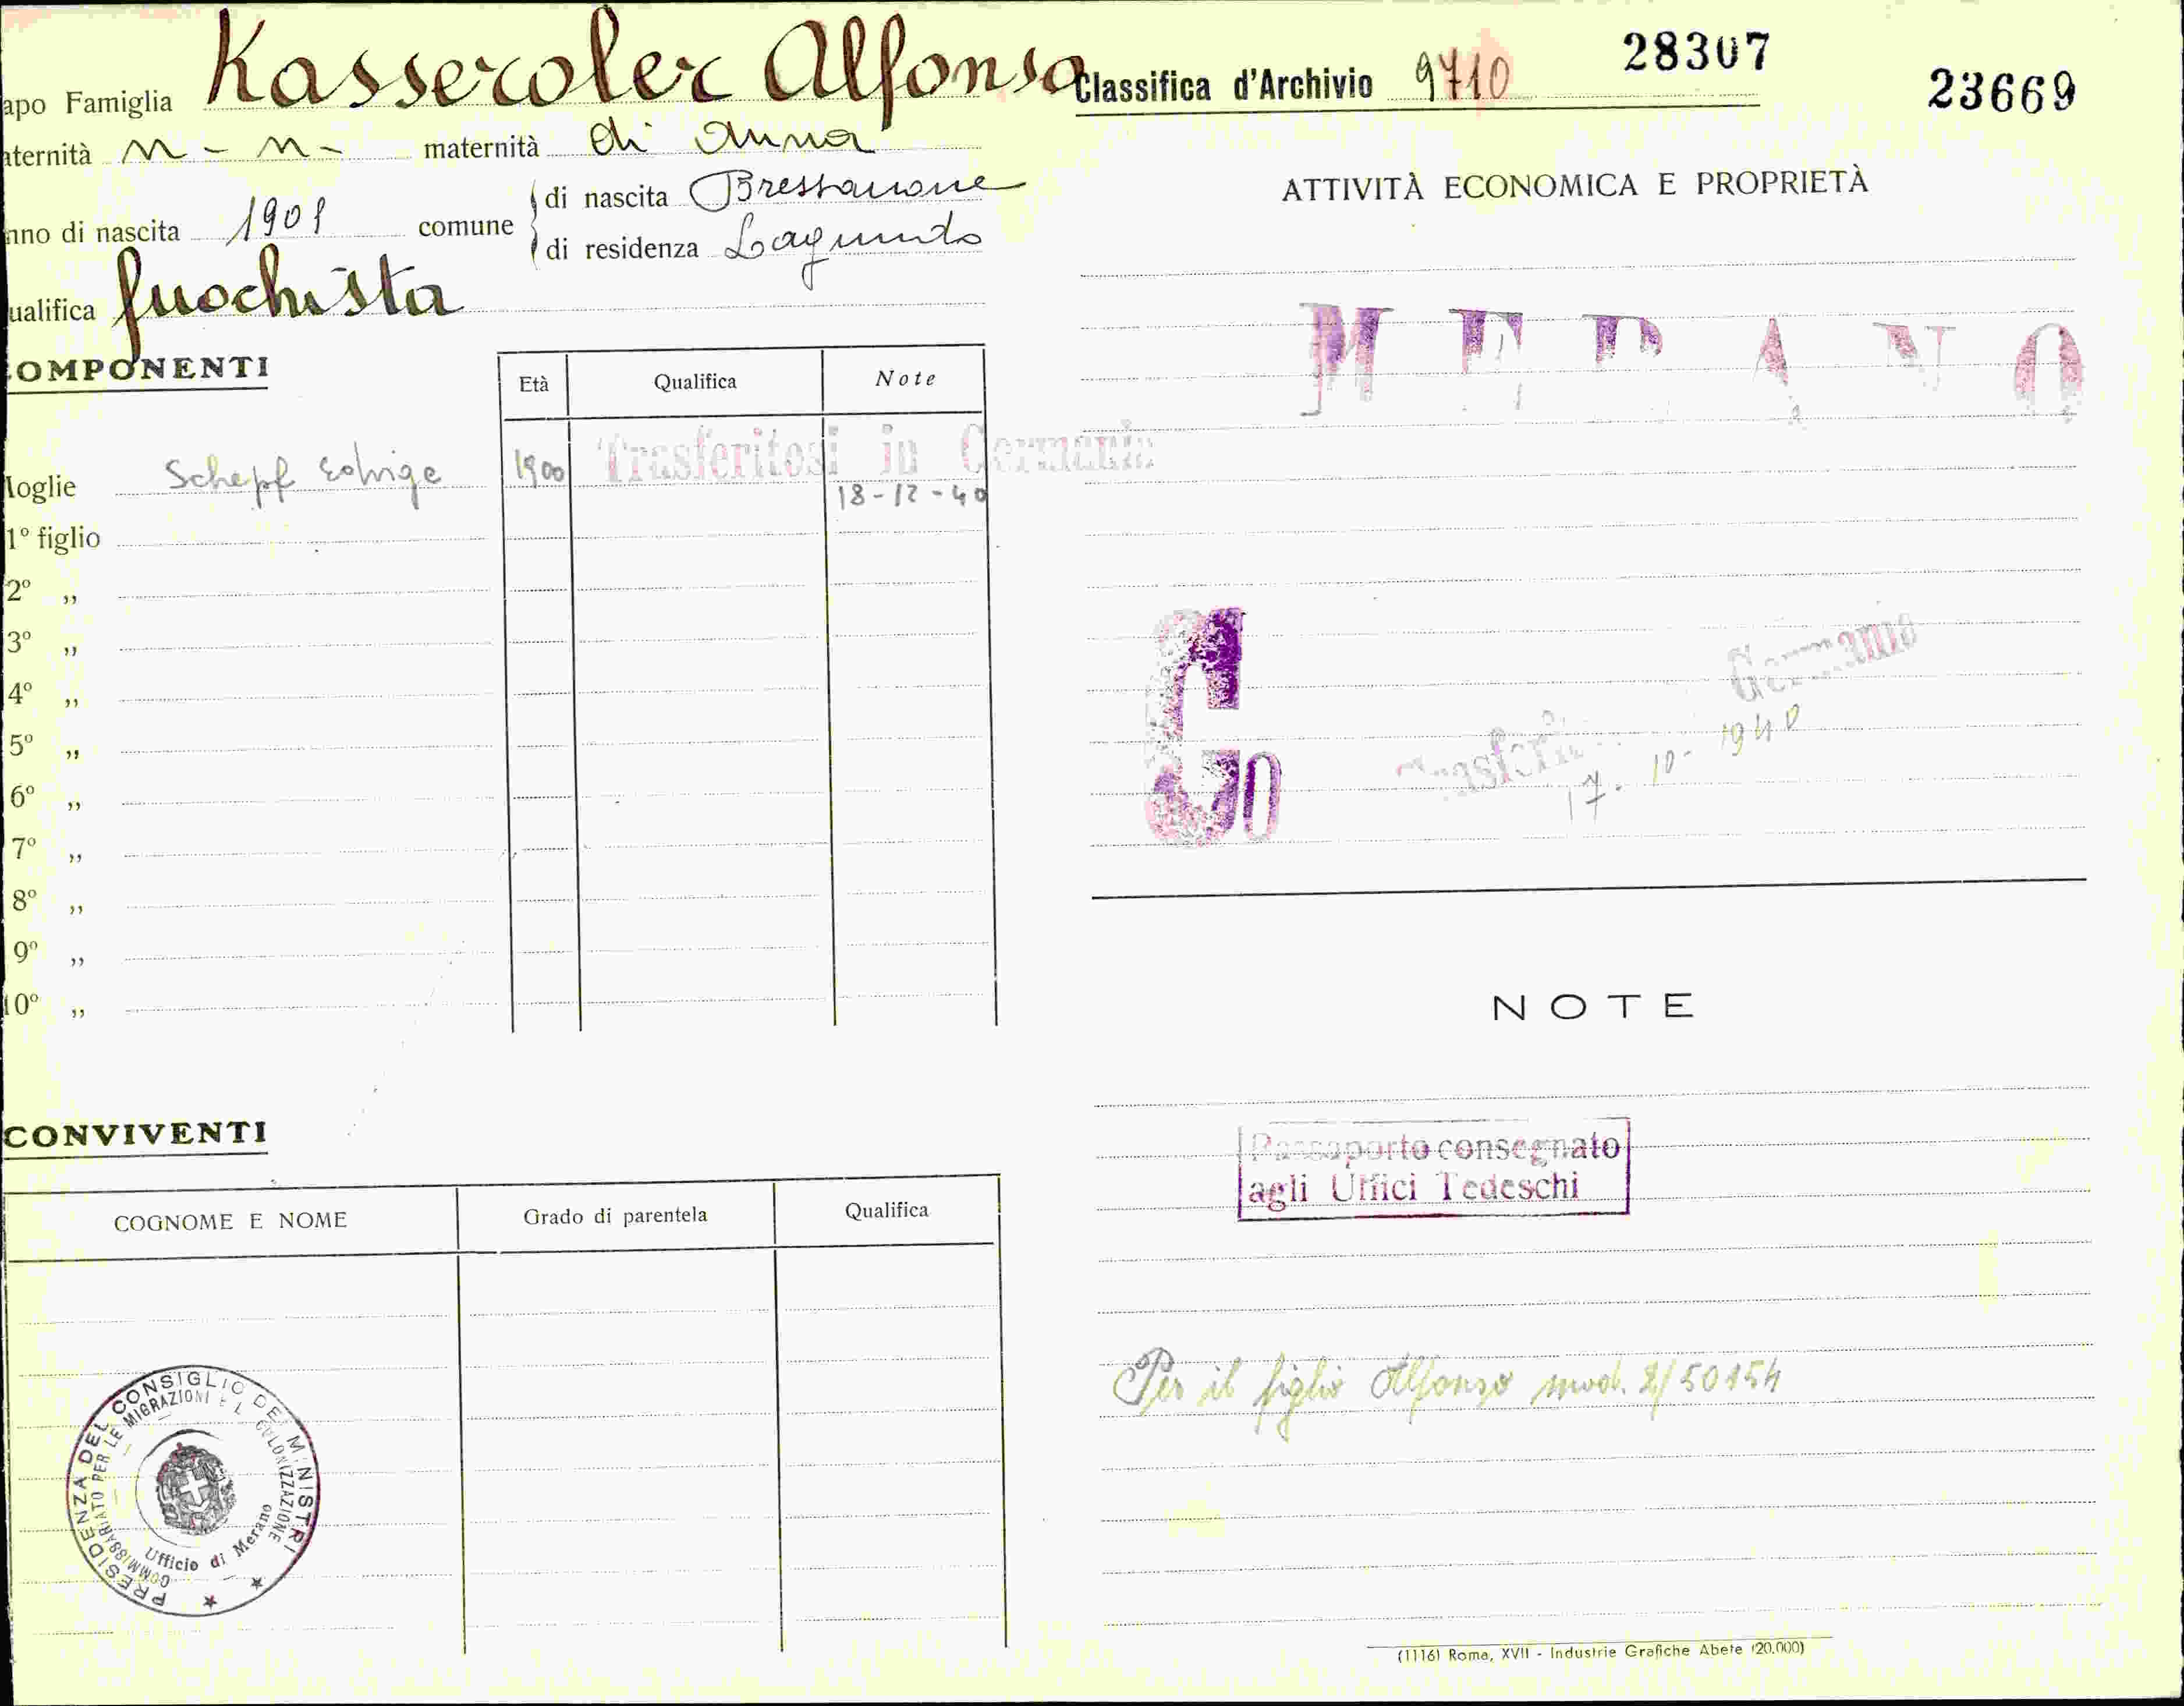 apo Famiglia Kasseroler Alfonso
aternità N - N - maternità di Anna
nno di nascita 1901 comune di nascita Bressanone
di residenza Lagundo
ualifica fuochista
OMPONENTI
Età Qualifica Note
oglie Schepf 1900 Trasferitosi in Germania
18-12-40
1º figlio
2º „
3º „
4º „
5º „
6º „
7º „
8º „
9º „
10º „
CONVIVENTI
COGNOME E NOME Grado di parentela Qualifica
PRESIDENZA DEL CONSIGLIO DEI MINISTRI
COMMISSARIATO PER LE MIGRAZIONI E L COLONIZZAZIONE
Ufficio di Merano
Classifica d'Archivio 9710 28307
23669
ATTIVITÀ ECONOMICA E PROPRIETÀ
MERANO
G
Germania
17-10-1940
NOTE
Passaporto consegnato
agli Uffici Tedeschi
Per il figlio Alfonso mod. 2/50154
(1116) Roma, XVII - Industrie Grafiche Abete (20.000)